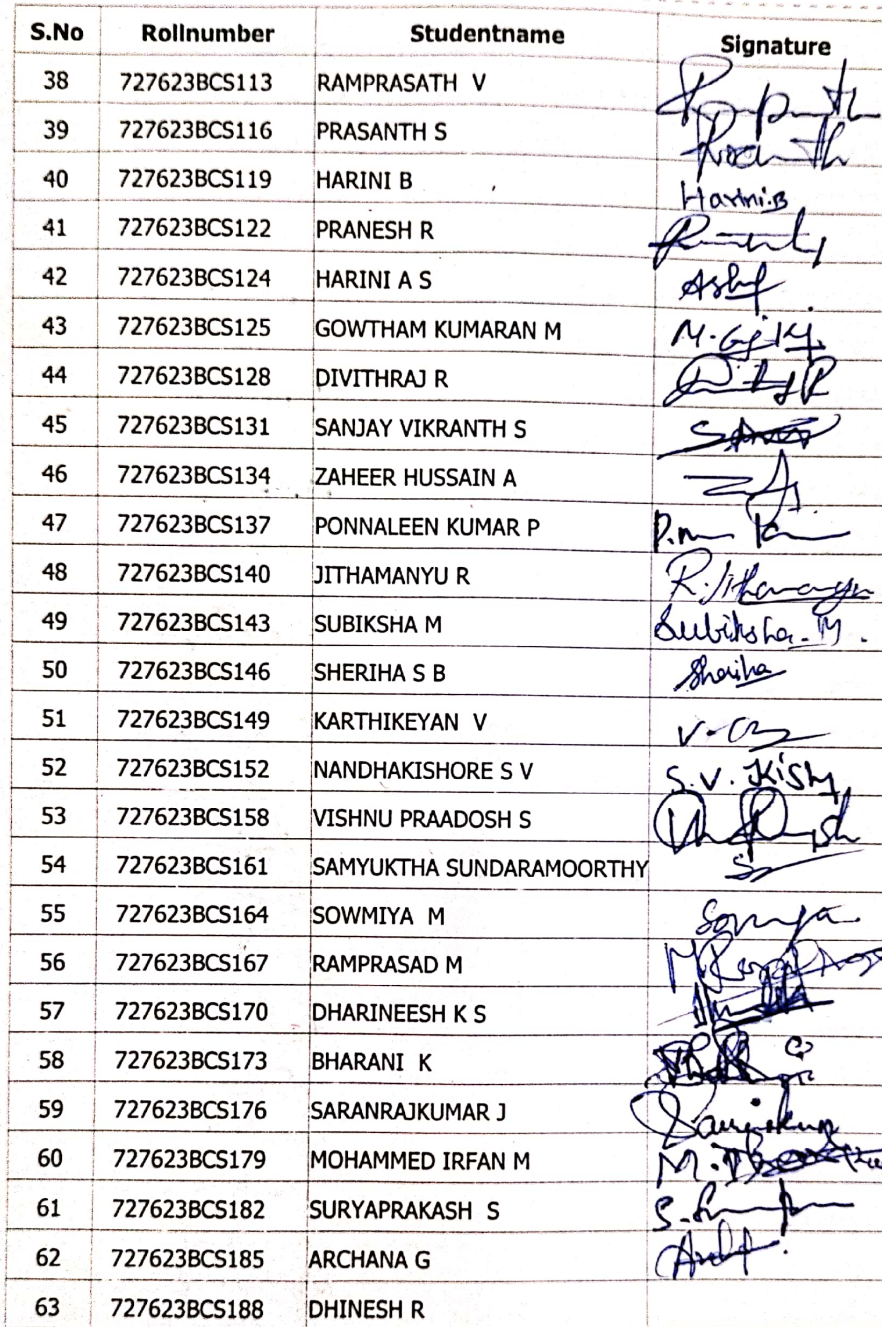 S.No Rollnumber Studentname Signature
38 727623BCS113 RAMPRASATH V
39 727623BCS116 PRASANTH S
40 727623BCS119 HARINI B Harini.B
41 727623BCS122 PRANESH R
42 727623BCS124 HARINI A S
43 727623BCS125 GOWTHAM KUMARAN M
44 727623BCS128 DIVITHRAJ R
45 727623BCS131 SANJAY VIKRANTH S
46 727623BCS134 ZAHEER HUSSAIN A
47 727623BCS137 PONNALEEN KUMAR P
48 727623BCS140 JITHAMANYU R R.Jithamanyu
49 727623BCS143 SUBIKSHA M Subiksha.M.
50 727623BCS146 SHERIHA S B Sheriha
51 727623BCS149 KARTHIKEYAN V
52 727623BCS152 NANDHAKISHORE S V S.V.
53 727623BCS158 VISHNU PRAADOSH S
54 727623BCS161 SAMYUKTHA SUNDARAMOORTHY
55 727623BCS164 SOWMIYA M
56 727623BCS167 RAMPRASAD M
57 727623BCS170 DHARINEESH K S
58 727623BCS173 BHARANI K
59 727623BCS176 SARANRAJKUMAR J
60 727623BCS179 MOHAMMED IRFAN M
61 727623BCS182 SURYAPRAKASH S
62 727623BCS185 ARCHANA G
63 727623BCS188 DHINESH R